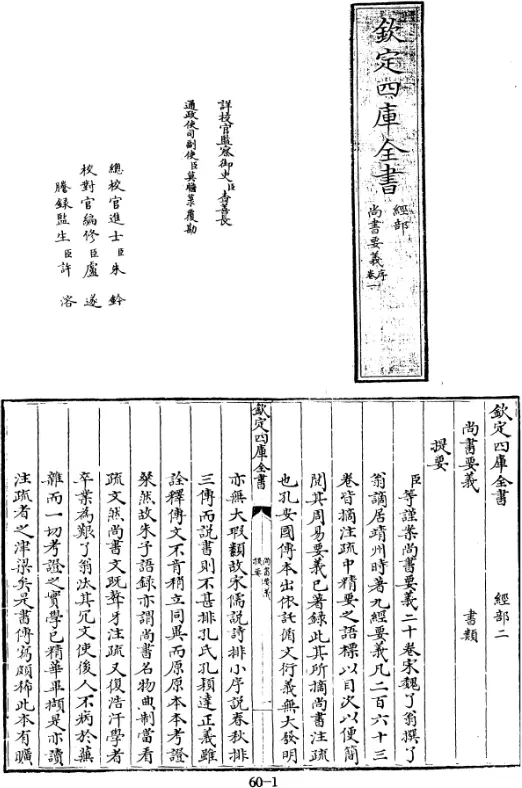 欽定四庫全書
經部
尚書要義序
卷一
詳校官監察御史臣
通政使司副使臣莫瞻菉覆勘
總校官進士臣朱鈐
校對官編修臣盧遂
謄錄監生臣許溶
欽定四庫全書
經部二
尚書要義
書類
提要
臣等謹案尚書要義二十卷宋魏了翁撰了
翁謫居靖州時著九經要義凡二百六十三
卷皆摘注疏中精要之語標以目次以便簡
閱其周易要義已著錄此其所摘尚書注疏
也孔安國傳本出依託循文衍義無大發明
欽定四庫全書
尚書要義
提要
亦無大瑕纇故宋儒說詩排小序說春秋排
三傳而說書則不甚排孔氏孔穎達正義雖
詮釋傳文不肯稍立同異而原原本本考證
粲然故朱子語錄亦謂尚書名物典制當看
疏文然尚書文既聱牙注疏又復浩汗學者
卒業為艱了翁汰其冗文使後人不病於蕪
雜而一切考證之實學已精華畢擷是亦讀
注疏者之津梁矣是書傳寫頗稀此本有曠
60-1